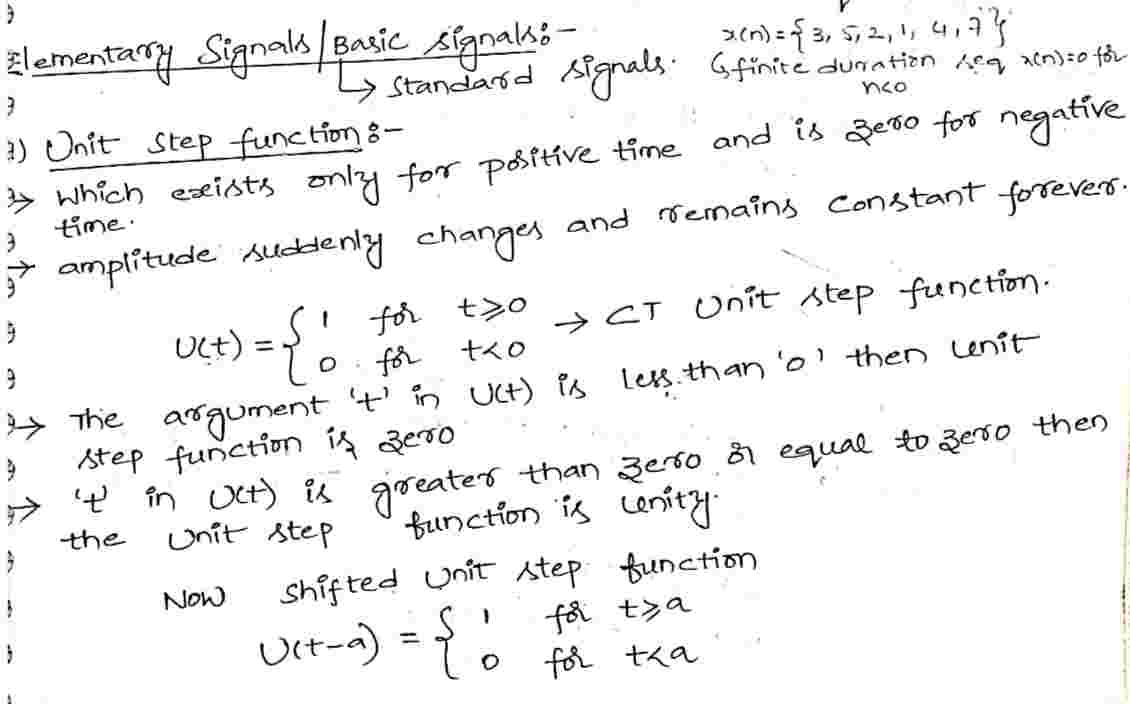 Elementary Signals/Basic signals:-
↳ Standard signals.
x(n)={3, 5, 2, 1, 4, 7}
↳ finite duration seq x(n)=0 for
n<0
a) Unit step function:-
→ which exists only for positive time and is zero for negative
time.
→ amplitude suddenly changes and remains constant forever.
U(t) = { 1 for t≥0
0 for t<0 → CT Unit step function.
→ The argument 't' in U(t) is less than '0' then unit
step function is zero
→ 't' in U(t) is greater than zero or equal to zero then
the unit step function is unity.
Now shifted unit step function
U(t-a) = { 1 for t≥a
0 for t<a